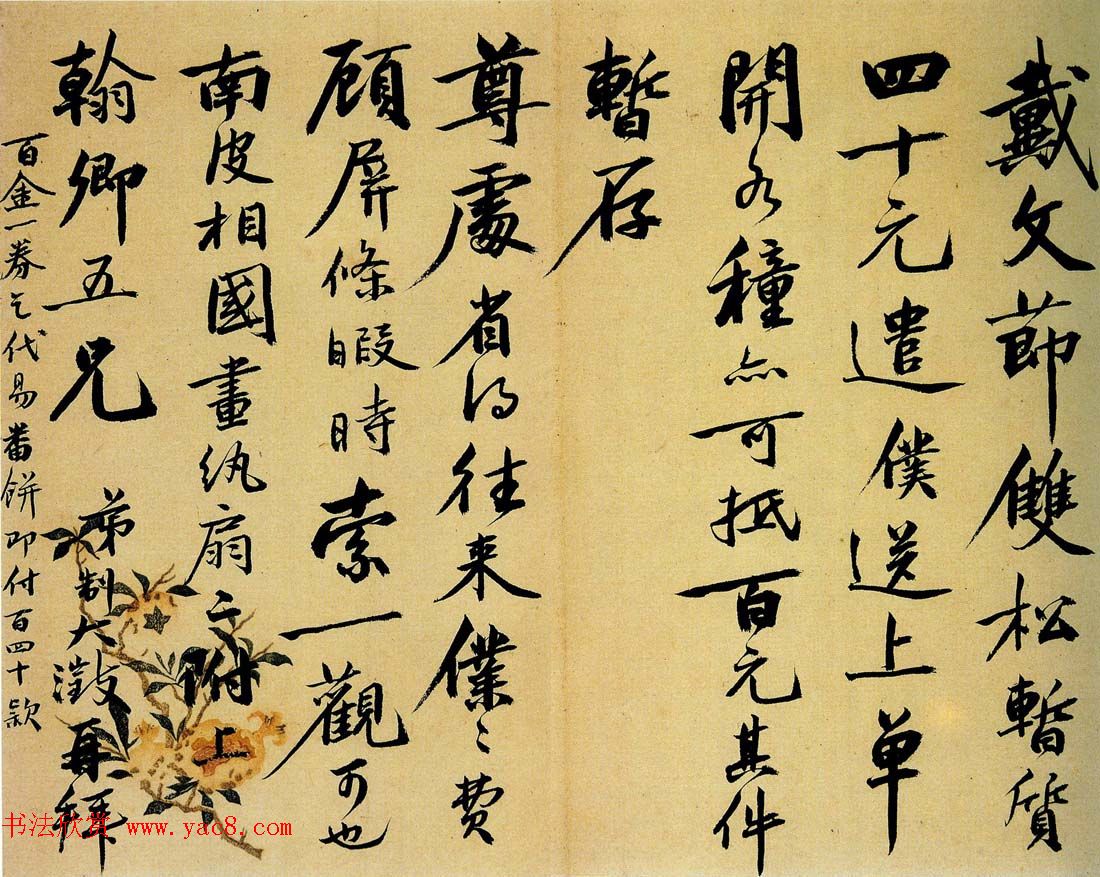 戴文節雙松暫質
四十元遣僕送上单
開各種亦可抵百元其件
暫存
尊處省得往来僕僕之費
顾屏條暇時索一觀可也
南皮相國畫紈扇二附上
翰卿五兄
弟制大澂再拜
百金一券乞代易番餅即付百四十款
书法欣赏 www.yac8.com